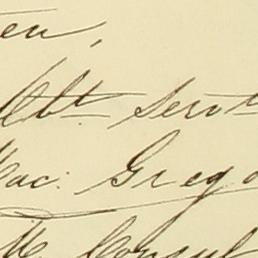 en,
Obt. Servt
Mac. Grego
M. Consul